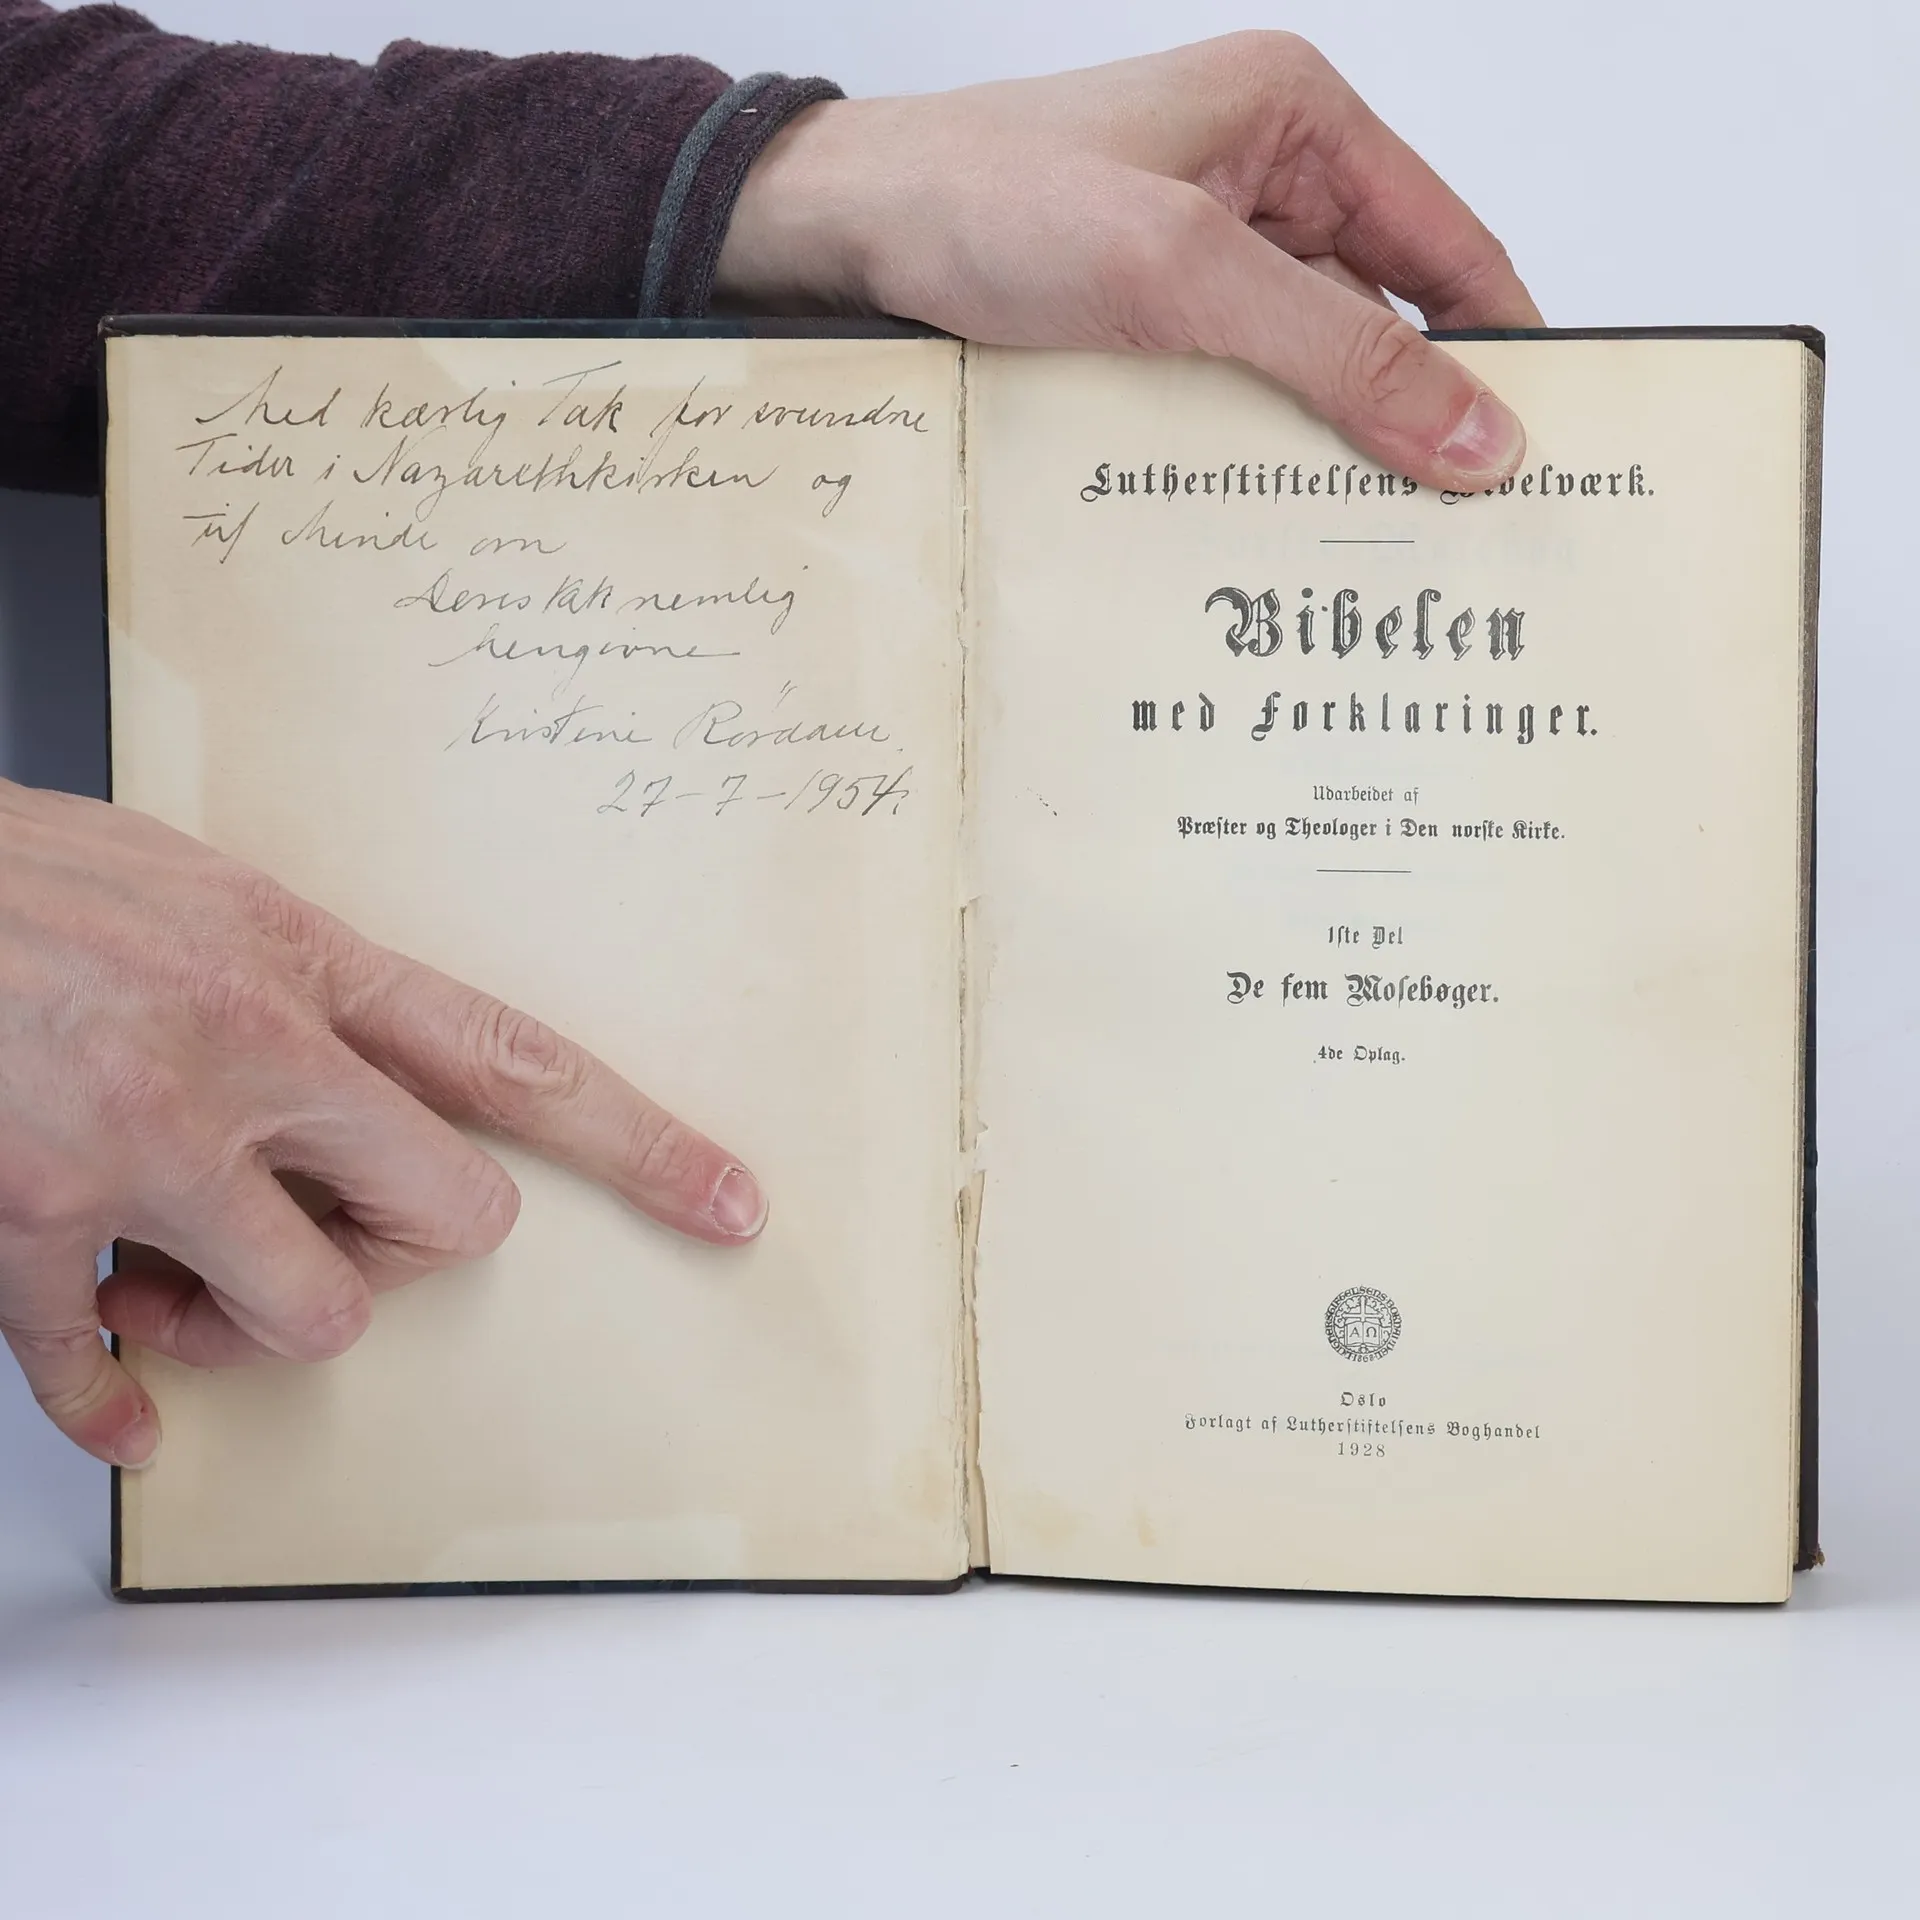 Med kærlig Tak for svundne
Tider i Nazarethkirken og
til Minde om
Deres taknemlig
hengivne
Kristine Rørdam.
27-7-1954.
Lutherstiftelsens Bibelværk.
Bibelen
med Forklaringer.
Udarbeidet af
Præster og Theologer i Den norske Kirke.
1ste Del
De fem Mosebøger.
4de Oplag.
A Ω
1868
Oslo
Forlagt af Lutherstiftelsens Boghandel
1928